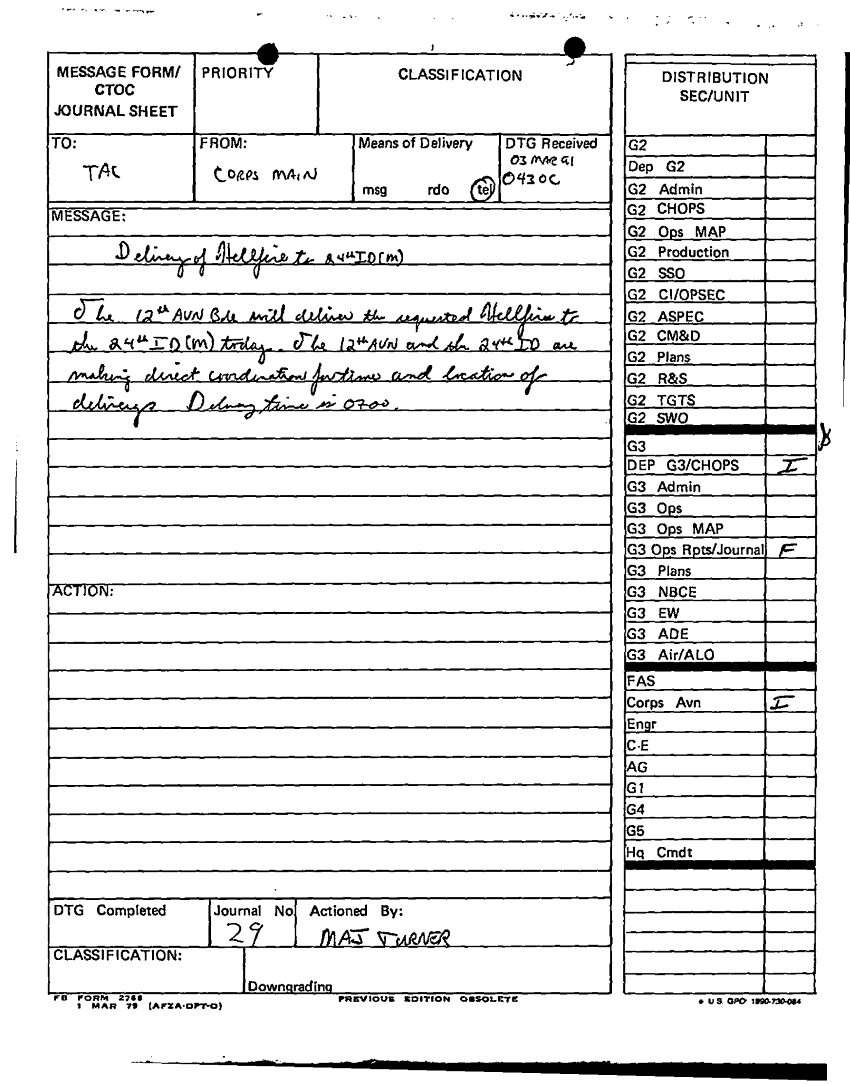 MESSAGE FORM/
CTOC
JOURNAL SHEET
PRIORITY
CLASSIFICATION
TO:
TAC
FROM:
CORPS MAIN
Means of Delivery
msg rdo tel
DTG Received
03 MAR 91
0430C
MESSAGE:
Delivery of Hellfire to 24th ID(M)
The 12th AVN Bde will deliver the requested Hellfire to
the 24th ID(M) today. The 12th AVN and the 24th ID are
making direct coordination for time and location of
delivery. Delivery time is 0700.
ACTION:
DTG Completed
Journal No
29
Actioned By:
MAJ TURNER
CLASSIFICATION:
Downgrading
FB FORM 2768
1 MAR 79 (AFZA-DPT-O)
PREVIOUS EDITION OBSOLETE
DISTRIBUTION
SEC/UNIT
G2
Dep G2
G2 Admin
G2 CHOPS
G2 Ops MAP
G2 Production
G2 SSO
G2 CI/OPSEC
G2 ASPEC
G2 CM&D
G2 Plans
G2 R&S
G2 TGTS
G2 SWO
G3
DEP G3/CHOPS I
G3 Admin
G3 Ops
G3 Ops MAP
G3 Ops Rpts/Journal F
G3 Plans
G3 NBCE
G3 EW
G3 ADE
G3 Air/ALO
FAS
Corps Avn I
Engr
C-E
AG
G1
G4
G5
Hq Cmdt
U.S. GPO: 1990-730-084